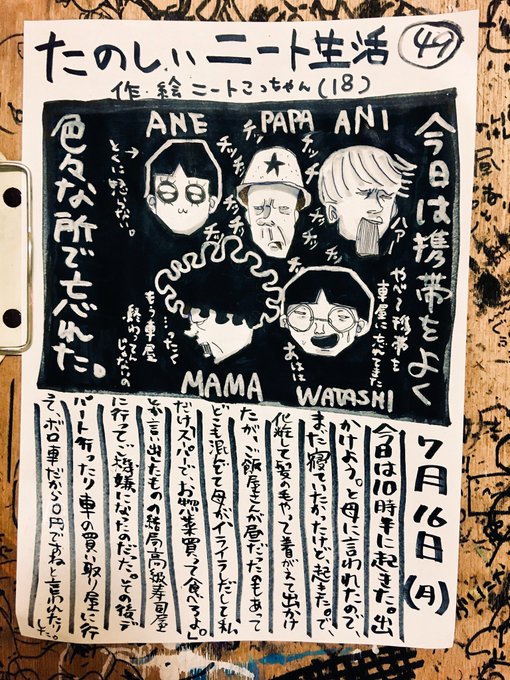 たのしいニート生活 49
作・絵 ニートこっちゃん(18)
今日は携帯をよく
色々な所で忘れた。
ANE
PAPA
ANI
チッ
チッ
チッ
チッ
チッ
チッ
チッ
ハァー
やべー携帯を
車屋に忘れてきた
→とくに怒らない。
…ったく
もう車屋
終わってんじゃんかの
あはは
MAMA
WATASHI
7月16日(月)
今日は10時半に起きた。出
かけよう。と母に言われたので、
まだ寝ていたかったけど起きた。で、
化粧して髪の毛やって着がえて出かけ
たが、ご飯屋さんが昼だったのもあって
どこも混んでて母がイライラしだし「と私
だけスーパーでお惣菜買って食べるよ。」
とか言い出したものの結局高級寿司屋
に行ってご機嫌になったのだった。その後デ
パート行ったり車の買い取り屋に行
って、ボロ車だから0円ですねと言われたりした。